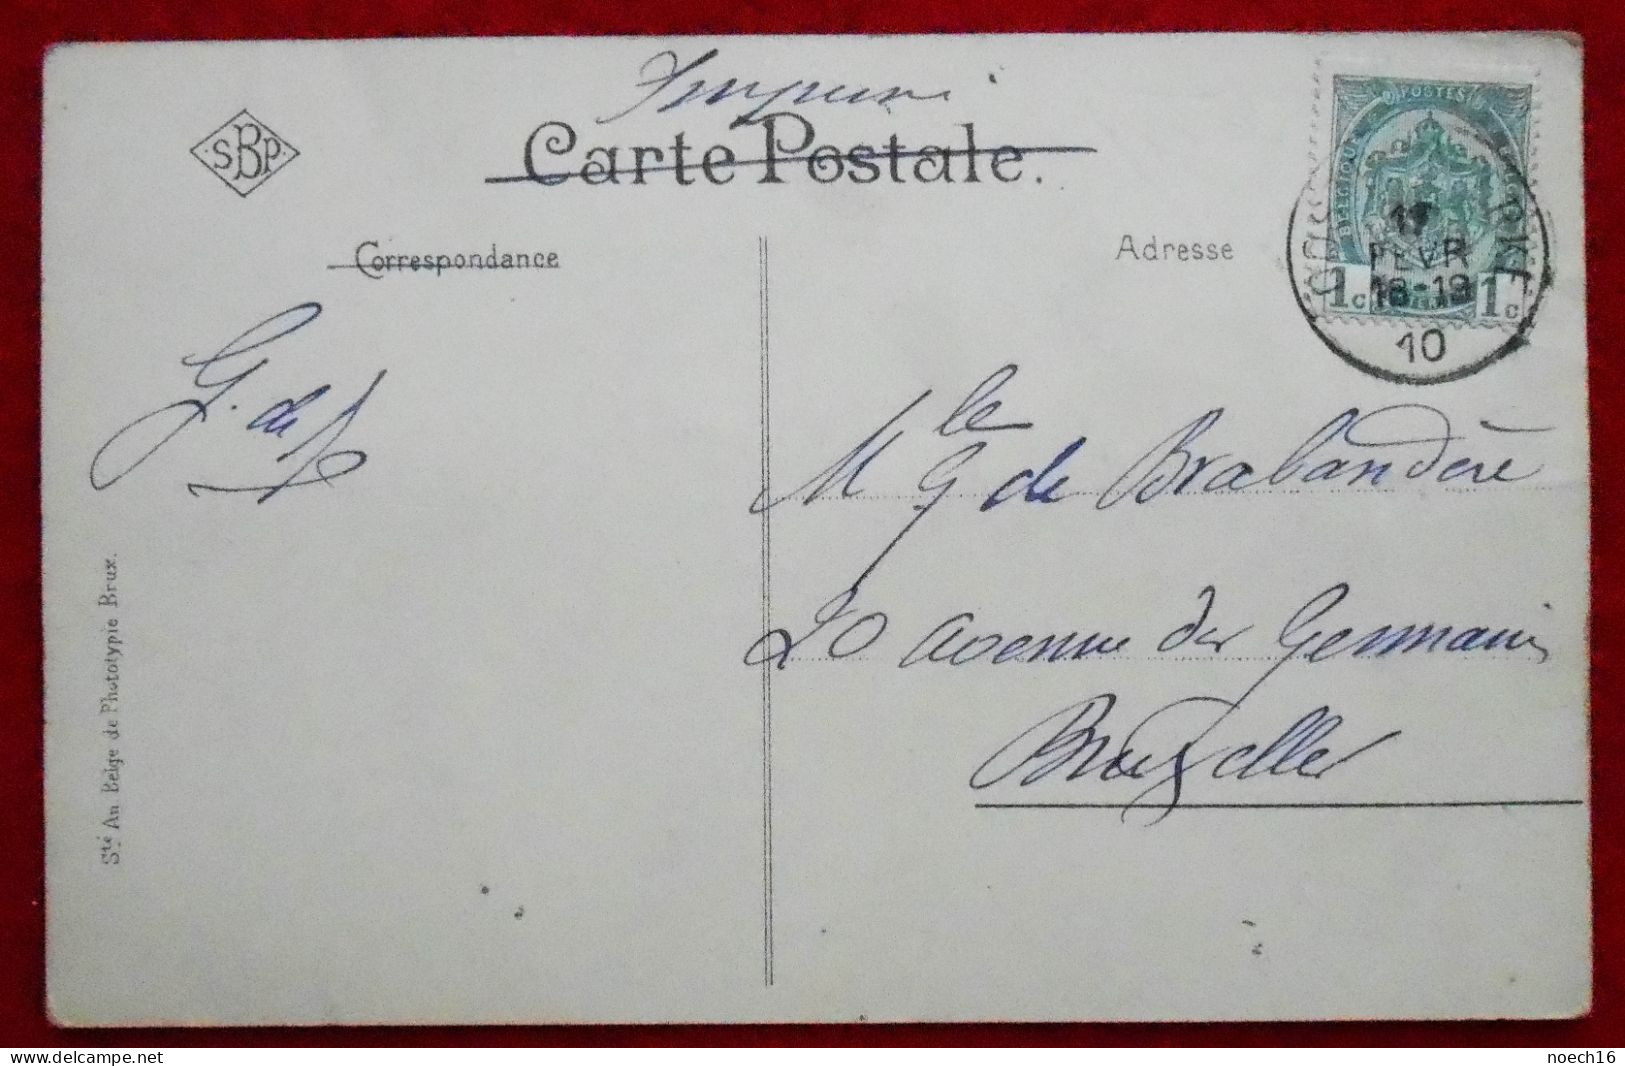 Imprimé
SBP
Carte Postale.
Correspondance
Adresse
POSTES
BELGIQUE
1c 1c
17
FEVR
18-19
10
G. de
Mlle G de Brabandère
20 avenue des Germains
Bruxelles
Sté An Belge de Phototypie Brux.
noech16